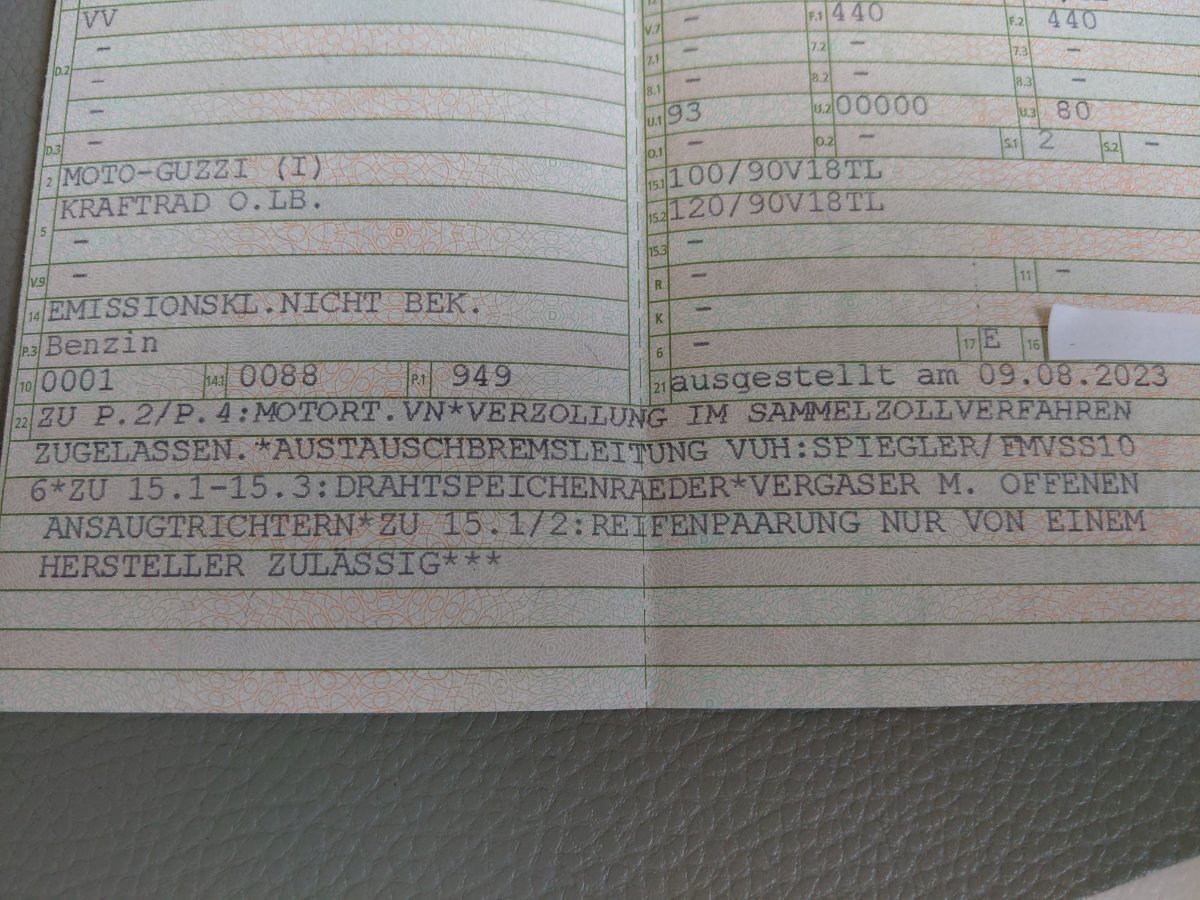 VV
V.7 - F.1 440 F.2 440
D.2 -
7.1 - 7.2 - 7.3 -
-
8.1 - 8.2 - 8.3 -
-
U.1 93 U.2 00000 U.3 80
D.3 -
O.1 - O.2 - S.1 2 S.2 -
2 MOTO-GUZZI (I)
15.1 100/90V18TL
5 KRAFTRAD O.LB.
15.2 120/90V18TL
-
15.3 -
V.9 -
R - 11 -
14 EMISSIONSKL.NICHT BEK.
K -
P.3 Benzin
6 - 17 E 16
10 0001 14.1 0088 P.1 949
21 ausgestellt am 09.08.2023
22 ZU P.2/P.4:MOTORT.VN*VERZOLLUNG IM SAMMELZOLLVERFAHREN
ZUGELASSEN.*AUSTAUSCHBREMSLEITUNG VUH:SPIEGLER/FMVSS10
6*ZU 15.1-15.3:DRAHTSPEICHENRAEDER*VERGASER M. OFFENEN
ANSAUGTRICHTERN*ZU 15.1/2:REIFENPAARUNG NUR VON EINEM
HERSTELLER ZULÄSSIG***